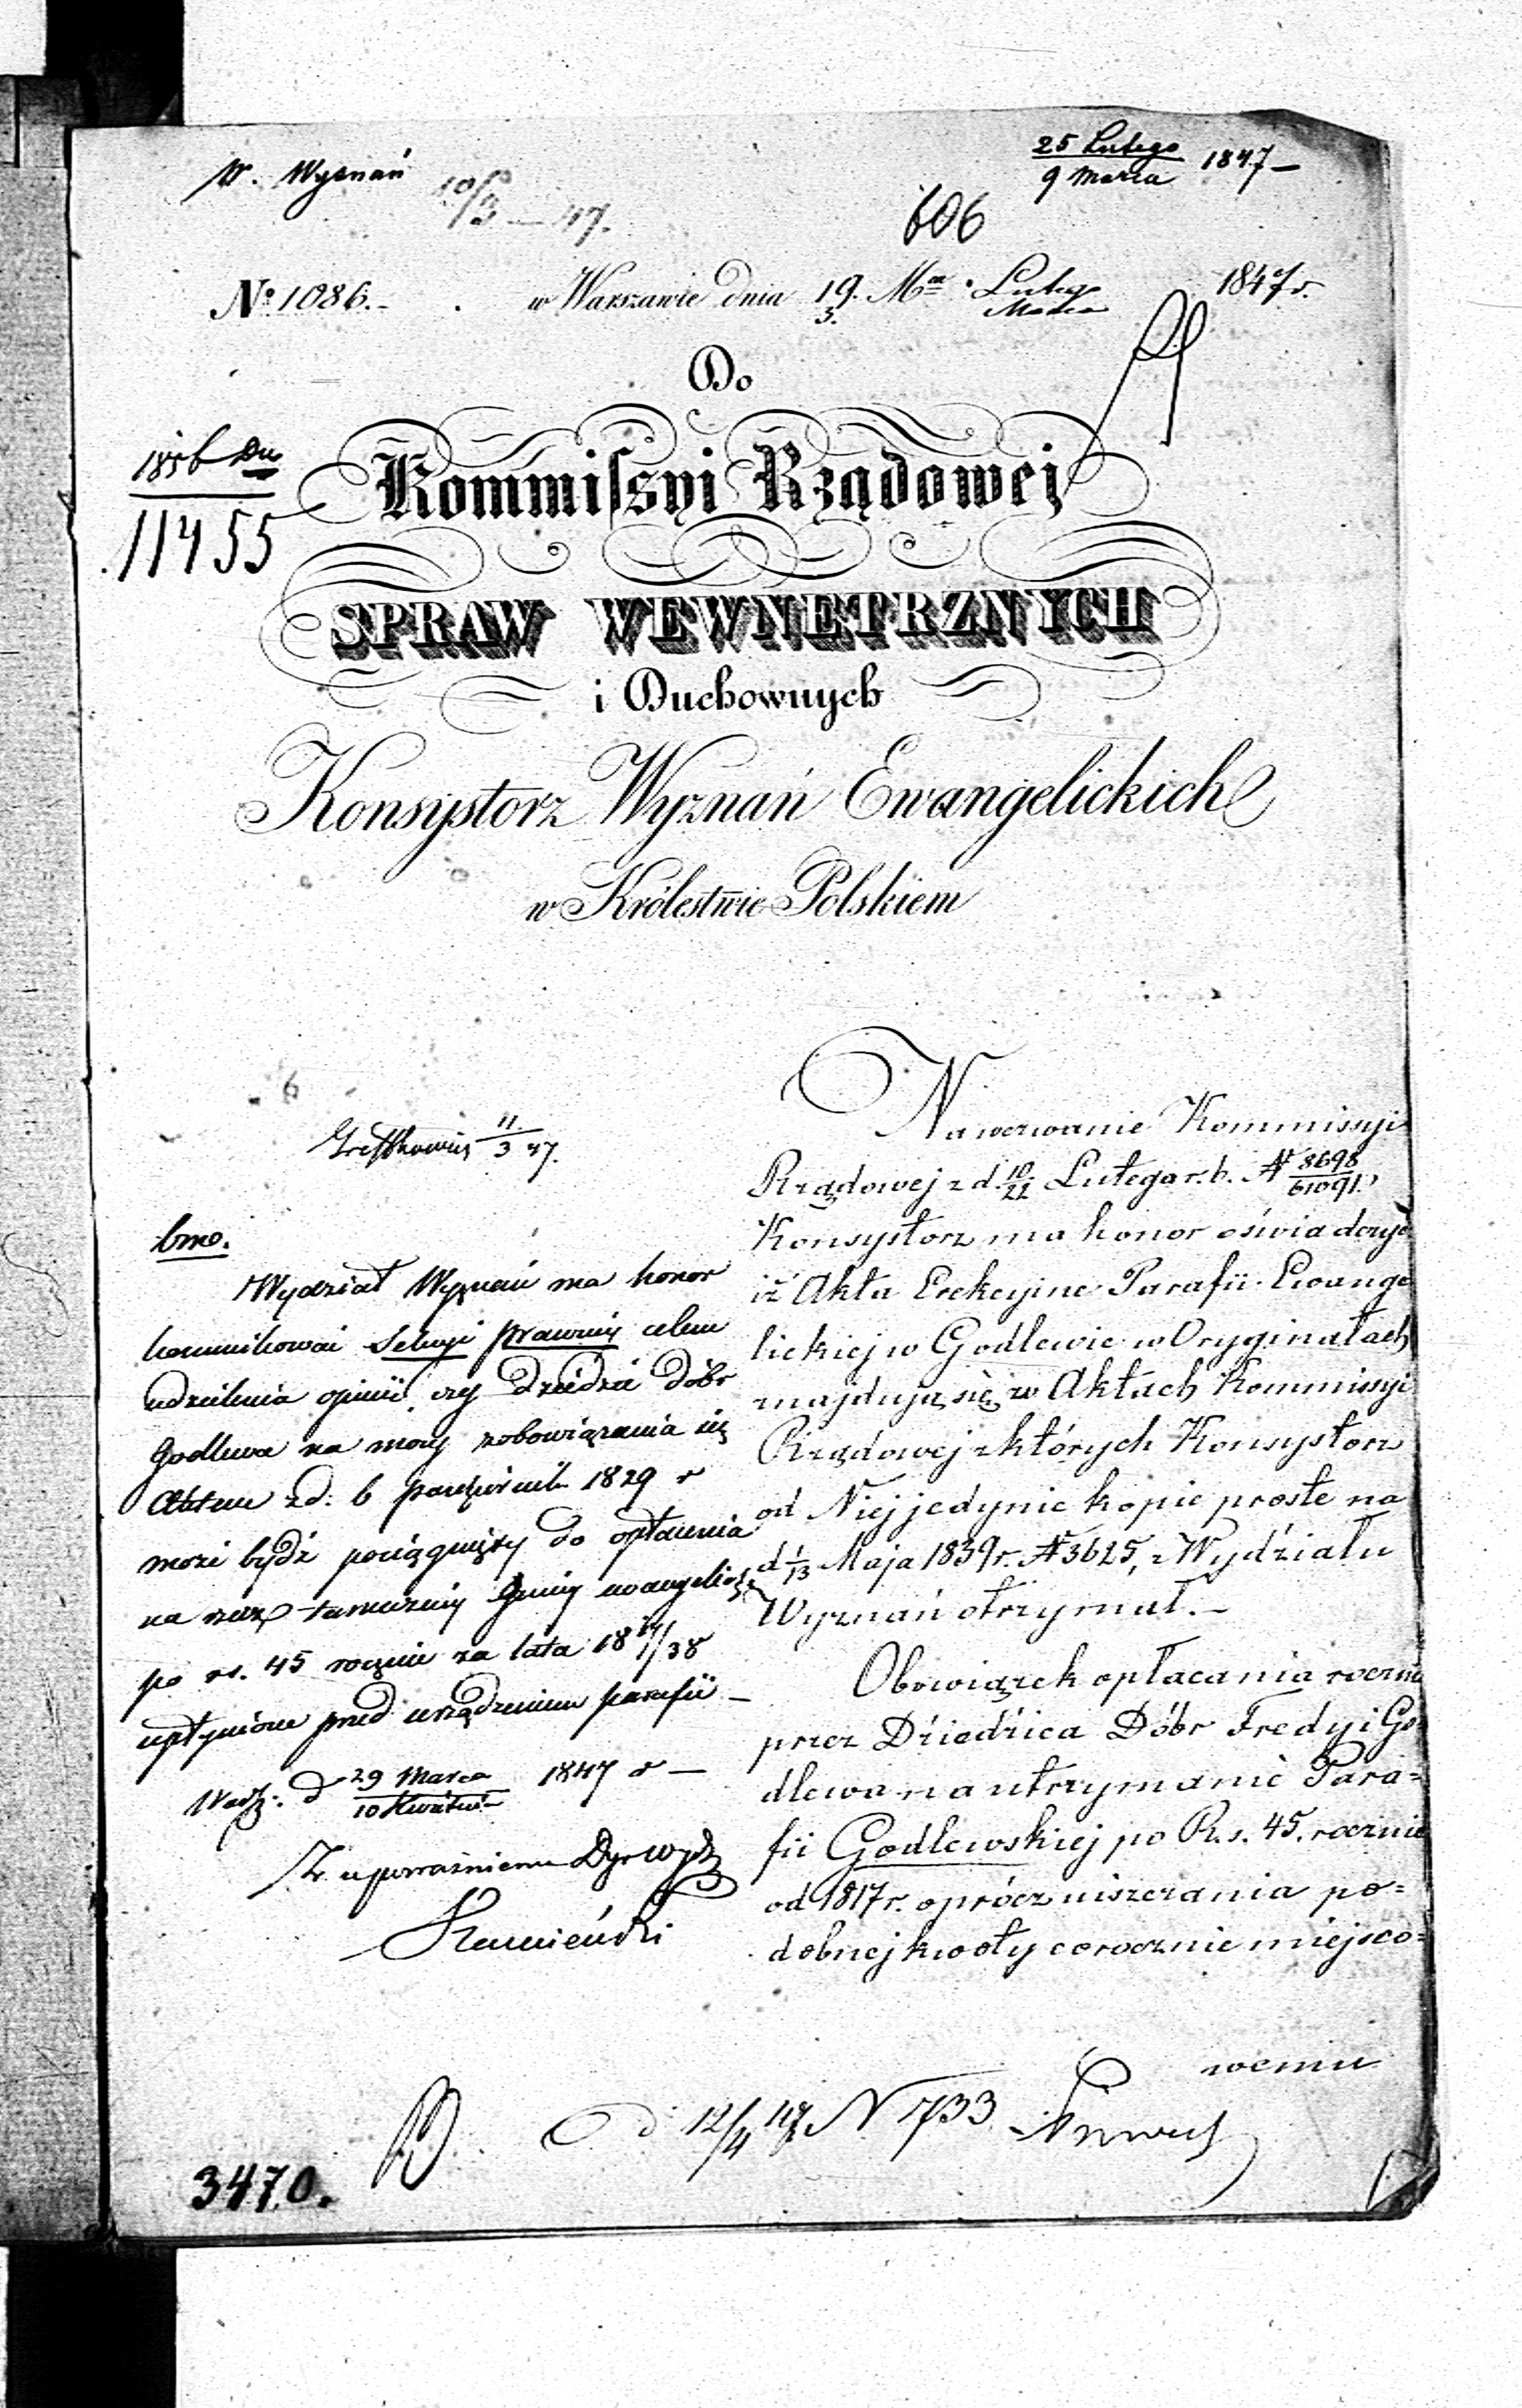 W. Wyznań
10/3 – 47.
25 Lutego
9 Marca 1847 –
606
№ 1086. –
w Warszawie dnia 19. Mca Lutego 1847 r.
3. Marca
Do
Kommiſsyi Rządowej
1856
11455
SPRAW WEWNETRZNYCH
i Duchownych
Konsystorz Wyznań Ewangelickich
w Królestwie Polskiem
11/3 47.
bmo.
Wydział Wyznań ma honor
kommunikować Sekcyi prawnéj celem
udzielenia opinii, czy dziedzic dóbr
Godlewa na mocy zobowiązania się
Aktem z d: 6 Października 1829 r
może bydź pociągnięty do opłacenia
na rzecz tamecznéj Gminy ewangelick:
po rs. 45 rocznie za lata 18 17/38
upłynione przed urządzeniem parafii –
Warsz: d 29 Marca 1847 r –
10 Kwietnia
Z upoważnienia Dyr Wydz
Kamieński
Na wezwanie Kommissyi
Rządowej z d. 10/22 Lutego r. b. № 8698/61091.,
Konsystorz ma honor oświadczyć
iż Akta Erekcyjne Parafii Ewange
lickiej w Godlewie w Oryginałach
znajdują się w Aktach Kommissyi
Rządowej z których Konsystorz
od Niej jedynie kopie proste na
d 1/13 Maja 1839 r. № 3625, z Wydziału
Wyznań otrzymał. –
Obowiązek opłacania rocznie
przez Dziedzica Dóbr Fredy i Go=
dlewa na utrzymanie Para=
fii Godlewskiej po R. s. 45. rocznie
od 1817 r. oprócz uiszczania po=
dobnej kwoty corocznie miejsco=
wemu
d 12/4 47 N 1733
3470.